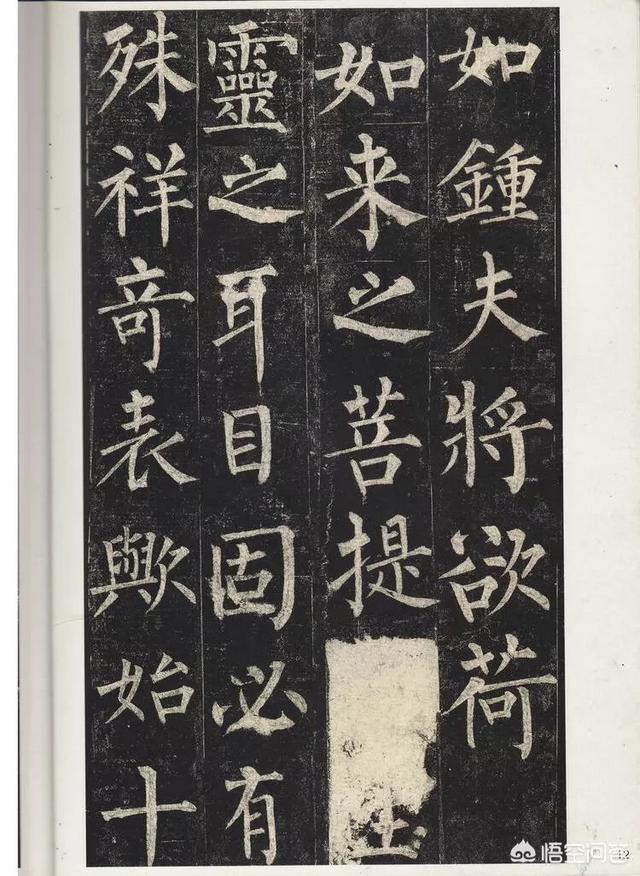 如鍾夫將欲荷
如来之菩提
靈之耳目固必有
殊祥竒表歟始十
12
悟空问答